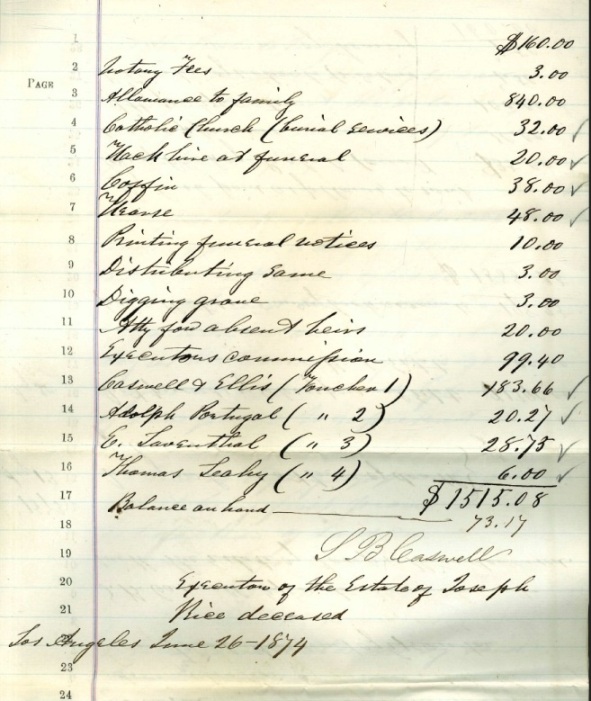 1 $160.00
PAGE
2 Notary Fees 3.00
3 Allowance to family 840.00
4 Catholic Church (burial services) 32.00 ✓
5 Hack hire at funeral 20.00 ✓
6 Coffin 38.00 ✓
7 Hearse 48.00 ✓
8 Printing funeral notices 10.00
9 Distributing same 3.00
10 Digging grave 3.00
11 Atty for absent heirs 20.00
12 Executors commission 99.40
13 Caswell & Ellis (Voucher 1) 183.66 ✓
14 Adolph Portugal ( " 2) 20.27 ✓
15 E. Laventhal ( " 3) 28.75 ✓
16 Thomas Leahy ( " 4) 6.00 ✓
17 $1515.08
Balance on hand — 73.17
18
19 S B Caswell
20 Executor of the Estate of Joseph
21 Rice deceased
Los Angeles June 26-1874
23
24